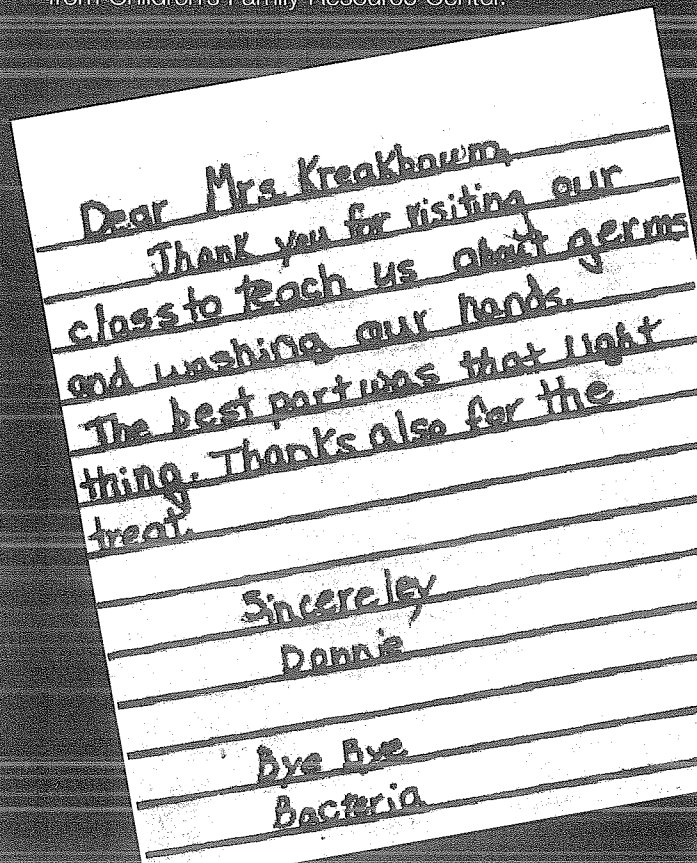 from Children's Family Resource Center.
Dear Mrs. Kreakbawm,
Thank you for visiting our
class to teach us about germs
and washing our hands.
The best part was that light
thing. Thanks also for the
treat.
Sincereley,
Donnie
Bye Bye
Bacteria